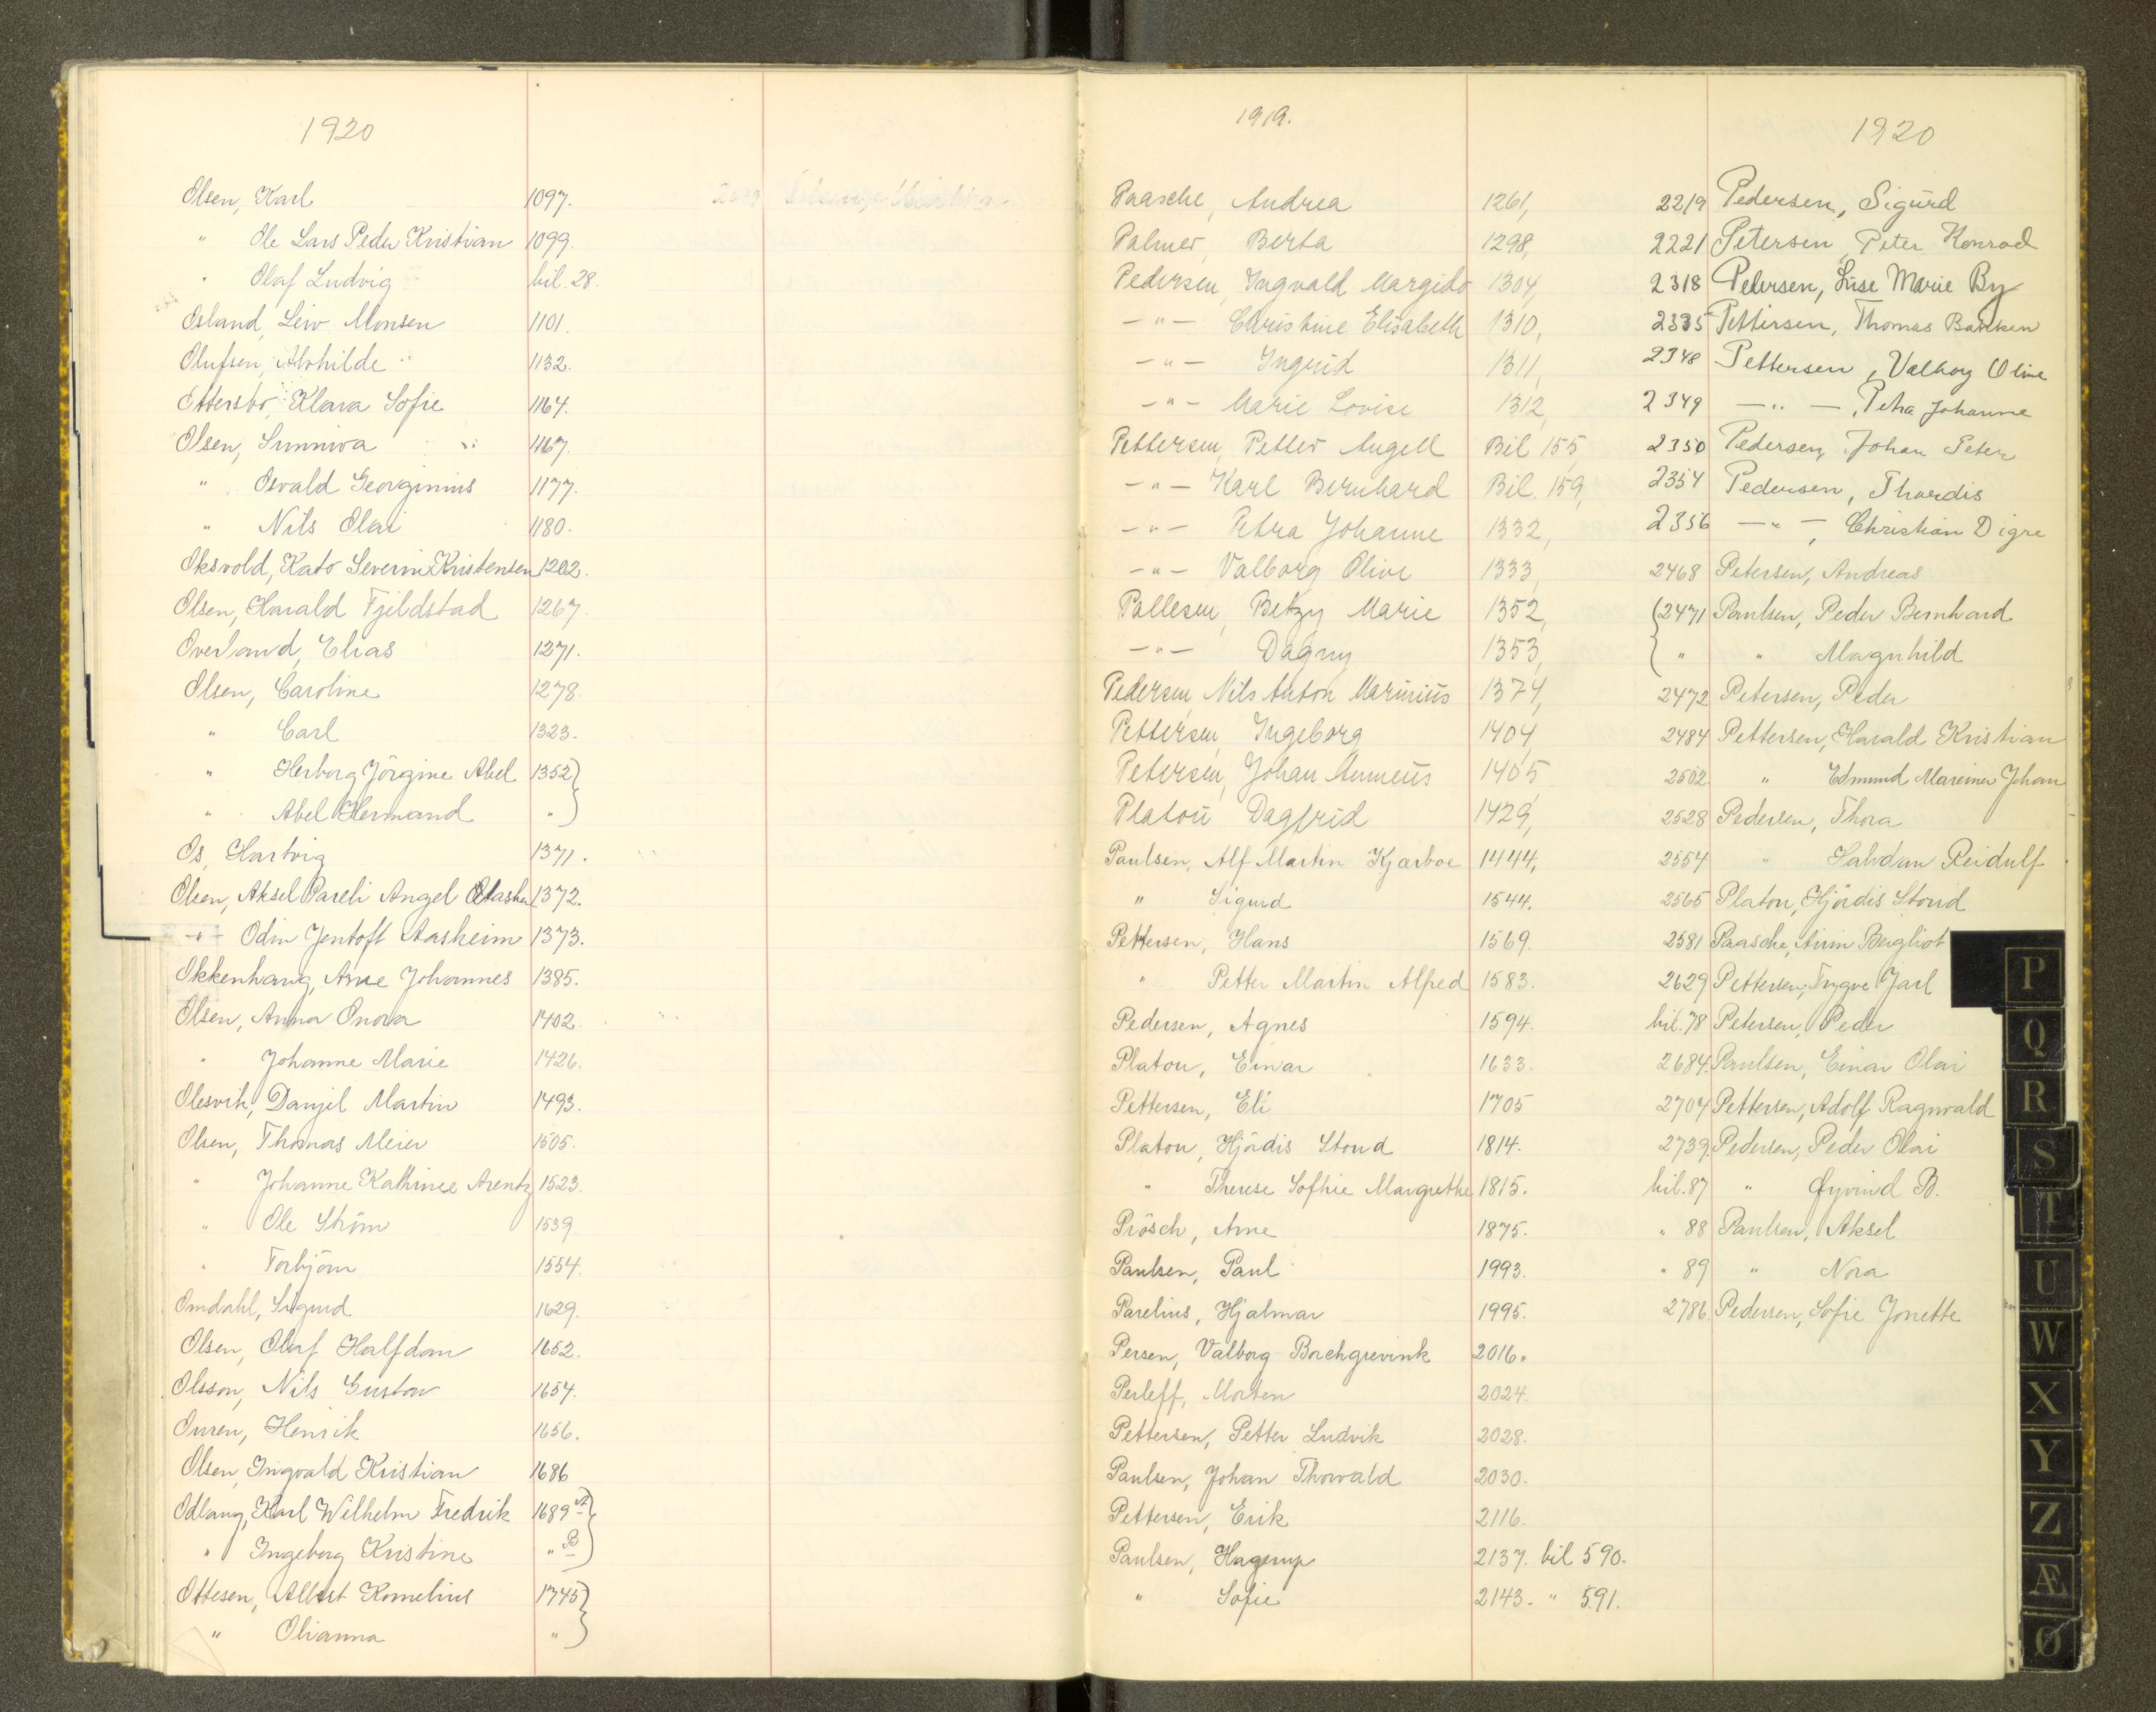 1920
Olsen, Karl 1097.
" Ole Lars Peder Kristian 1099.
" Olaf Ludvig bil. 28.
Osland, Leiv Monsen 1101.
Olufsen, Alvhilde 1132.
Ottersbo, Klara Sofie 1164.
Olsen, Sunniva 1167.
" Osvald Georginius 1177.
" Nils Olai 1180.
Oksvold, Kato Severin Kristensen 1202.
Olsen, Harald Fjildstad 1267.
Overland, Elias 1271.
Olsen, Caroline 1278.
" Carl 1323.
" Herborg Jörgine Abel 1352
" Abel Hermand "
Os, Hartvig 1371.
Olsen, Aksel Pareli Angel 1372.
-"- Odin Jentoft Aasheim 1373.
Okkenhaug, Arne Johannes 1385.
Olsen, Anna Onora 1402.
" Johanne Marie 1426.
Olesvik, Danjel Martin 1493.
Olsen, Thomas Meier 1505.
" Johanne Kathinee Arentz 1523.
" Ole Ström 1539
" Torbjörn 1554.
Omdahl, Sigurd 1629.
Olsen, Olaf Halfdan 1652.
Olsson, Nils Gustav 1654.
Ouren, Henrik 1656.
Olsen, Ingvald Kristian 1686
Odlaug, Karl Wilhelm Fredrik 1689 A
" Ingeborg Kristine " B
Ottesen, Albert Kornelius 1745
" Olianna "
1919.
Paasche, Andrea 1261,
Palmer, Berta 1298,
Pedersen, Ingvald Margido 1304,
-"- Christine Elisabeth 1310,
-"- Ingrid 1311,
-"- Marie Lovise 1312,
Pettersen, Petter Angell Bil 155,
-"- Karl Bernhard Bil. 159,
-"- Petra Johanne 1332,
-"- Valborg Olive 1333,
Pallesen, Betzy Marie 1352,
-"- Dagny 1353,
Pedersen, Nils Anton Marinius 1374,
Pettersen, Ingeborg 1404,
Petersen, Johan Anneus 1405,
Platou Dagfrid 1429,
Paulsen, Alf Martin Kjærboe 1444.
" Sigurd 1544.
Pettersen, Hans 1569.
" Petter Martin Alfred 1583.
Pedersen, Agnes 1594.
Platou, Einar 1633.
Pettersen, Eli 1705
Platou, Hjördis Stoud 1814.
" Therese Sofhie Mavgrethe 1815.
Prösch, Arne 1875.
Paulsen, Paul 1993.
Parelius, Hjalmar 1995.
Persen, Valborg Borchgrevink 2016.
Perleff, Morten 2024.
Pettersen, Petter Ludvik 2028.
Paulsen, Johan Thorvald 2030.
Pettersen, Erik 2116.
Paulsen, Hagerup 2137. bil 590.
" Sofie 2143. " 591.
1920
2219 Pedersen, Sigurd
2221 Petersen, Peter Konrad
2318 Petersen, Lise Marie By
2335 Pettersen, Thomas Banken
2348 Pettersen, Valborg Olive
2349 -"-, Petra Johanne
2350 Pedersen, Johan Peter
2354 Pedersen, Thordis
2356 -"-, Christian Digre
2468 Petersen, Andreas
2471 Paulsen, Peder Bernhard
" " Magnhild
2472 Petersen, Peder
2484 Pettersen, Harald Kristian
2502 " Edmund Mareiner Johan
2528 Pedersen, Thora
2554 " Halvdan Reidulf
2565 Platou, Hjördis Stoud
2581 Paasche, Bergliot
2629 Pettersen, Trygve Jarl
bil. 78 Petersen, Peder
2684. Paulsen, Einar Olai
2704 Pettersen, Adolf Ragnvald
2739. Pedersen, Peder Olai
bil. 87 " Øyvind B.
" 88 Paulsen, Aksel
" 89 " Nora
2786. Pedersen, Sofie Jonette
P
Q
R
S
T
U
W
X
Y
Z
Æ
Ø